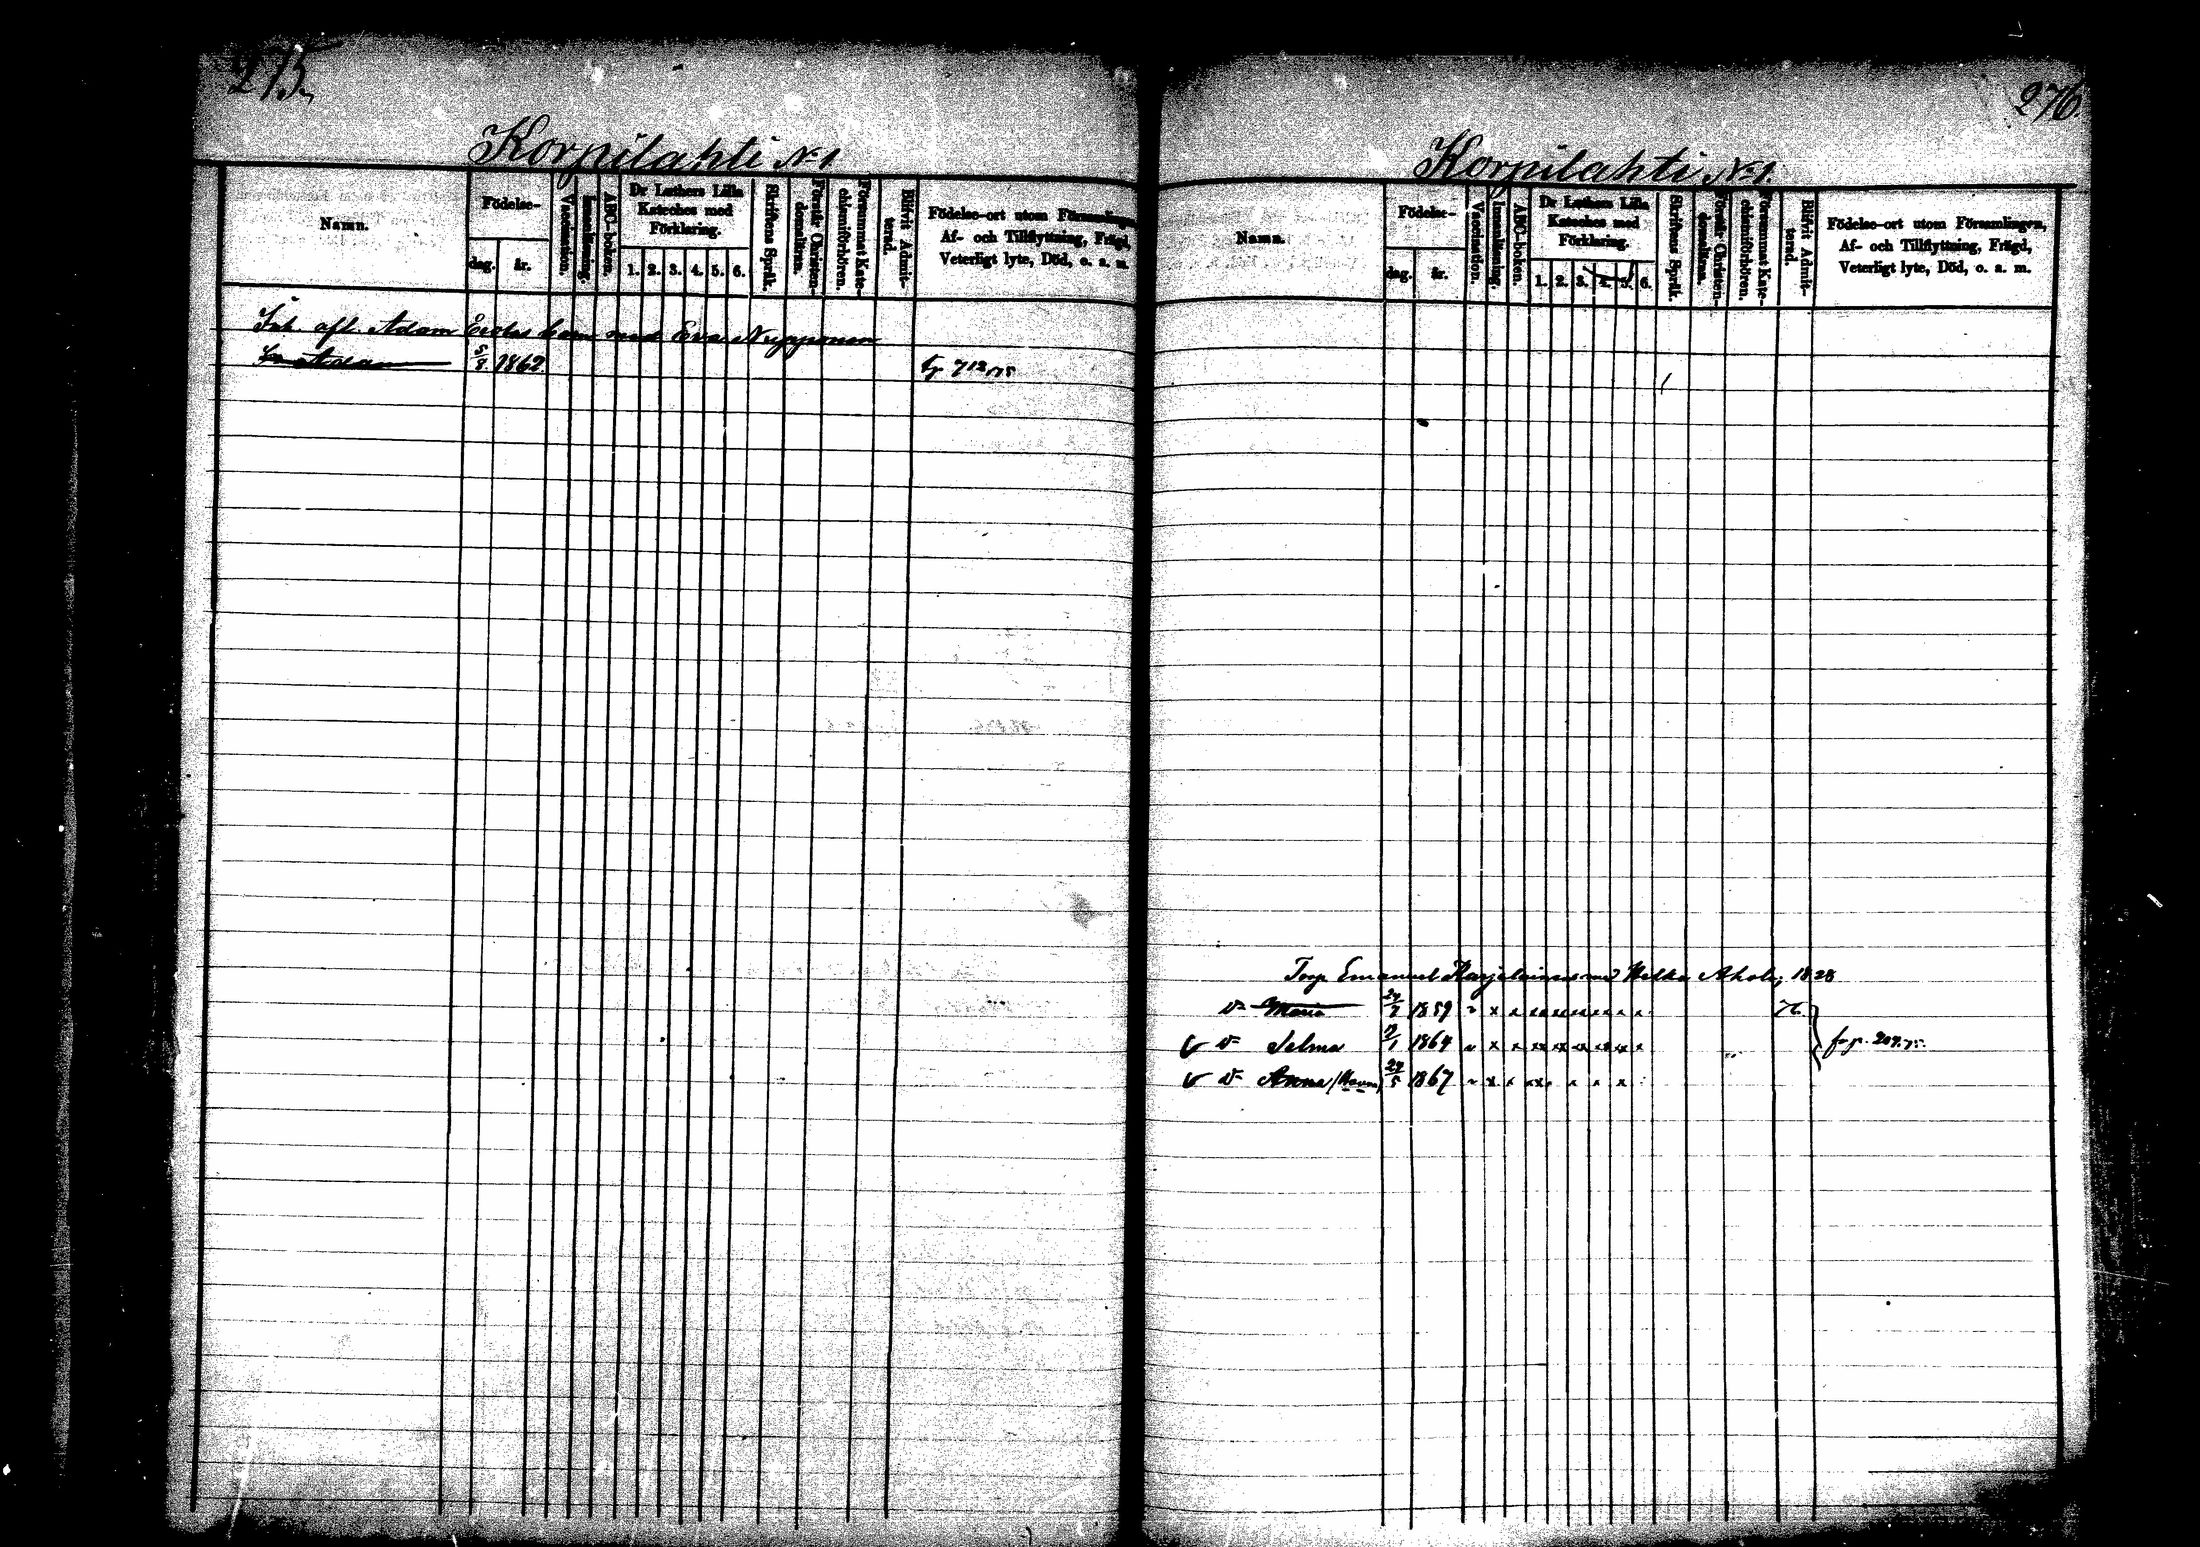 275.
Korpilahti N:1
Namn.
Födelse-
dag.
år.
Vaccination.
Innanläsning.
ABC-boken.
Dr Luthers Lilla
Kateches med
Förklaring.
1. 2. 3. 4. 5. 6.
Skriftens Språk.
Förstår Christen-
domsläran.
Försummat Kate-
chismiförhören.
Blifvit Admit-
terad.
Födelse-ort utom Församlingen,
Af- och Tillflyttning, Frägd,
Veterligt lyte, Död, o. a. m.
Inh. afl. Adam barn med Eva Nupponen
Adam 1862 712
276.
Korpilahti N:1.
Namn.
Födelse-
dag.
år.
Vaccination.
Innanläsning.
ABC-boken.
Dr Luthers Lilla
Kateches med
Förklaring.
1. 2. 3. 4. 5. 6.
Skriftens Språk.
Förstår Christen-
domsläran.
Försummat Kate-
chismiförhören.
Blifvit Admit-
terad.
Födelse-ort utom Församlingen,
Af- och Tillflyttning, Frägd,
Veterligt lyte, Död, o. a. m.
Torp. Emanuel Karjalainens med Aholt, 1828
Maria 1859
Selma 1864 fr. p. 209.
Anna 24/5 1867